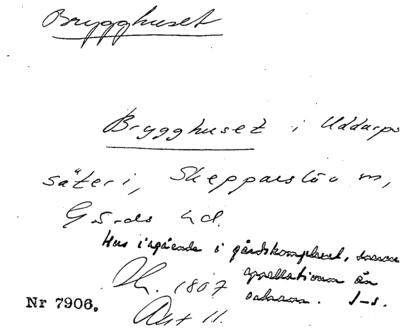 Brygghuset
Brygghuset i Uddarps
säteri, Skepparslöv sn,
Gärds hd.
Hus ingående i gårdskomplexet, samma
appellativum än
sedan. I-s.
1807
Akt 11.
Nr 7906.